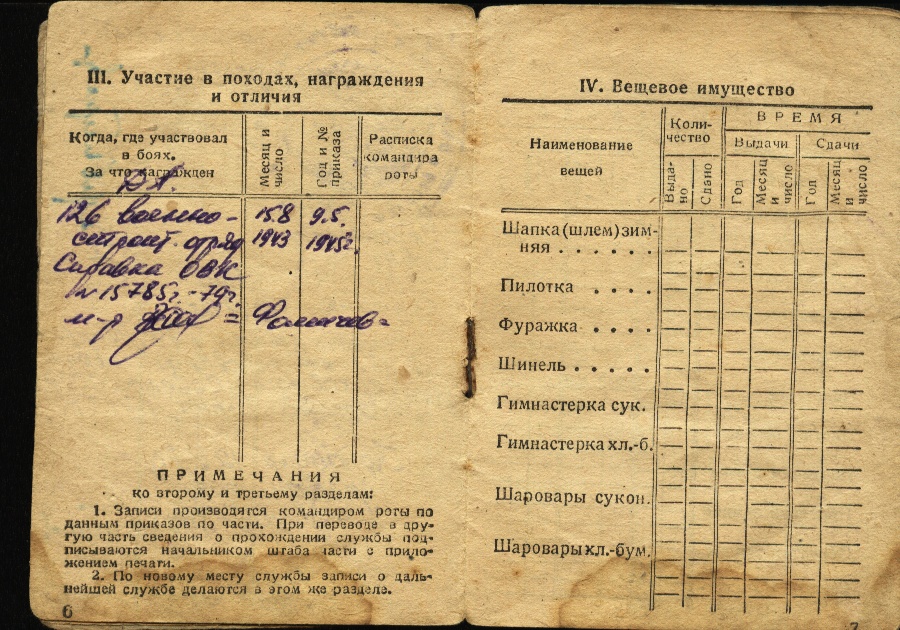 III. Участие в походах, награждения
и отличия
Когда, где участвовал
в боях.
За что награжден
Месяц и
число
Год и №
приказа
Расписка
командира
роты
ДА.
126 военно-
строит. отряд
15.8
1943
9.5.
1945г.
Справка ОВК
№15785г. -79г.
м-р
ПРИМЕЧАНИЯ
ко второму и третьему разделам:
1. Записи производятся командиром роты по
данным приказов по части. При переводе в дру-
гую часть сведения о прохождении службы под-
писываются начальником штаба части с прило-
жением печати.
2. По новому месту службы записи о даль-
нейшей службе делаются в этом же разделе.
6
IV. Вещевое имущество
Наименование
вещей
Коли-
чество
ВРЕМЯ
Выдачи
Сдачи
Выда-
но
Сдано
Год
Месяц
и
число
Год
Месяц
и
число
Шапка (шлем) зим-
няя . . . . . .
Пилотка . . . .
Фуражка . . . .
Шинель . . . . .
Гимнастерка сук.
Гимнастерка хл.-б.
Шаровары сукон.
Шаровары хл.-бум.
7